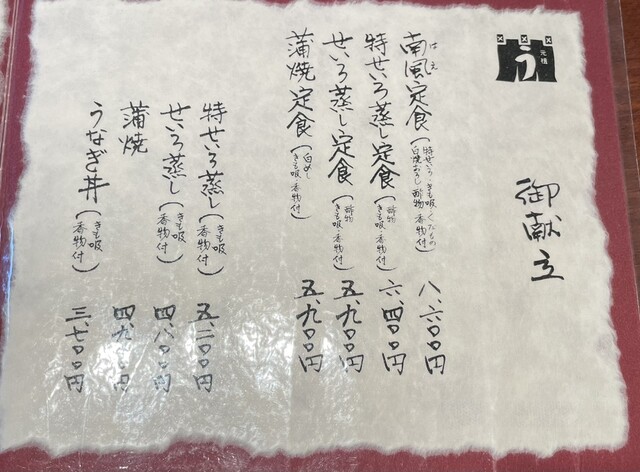 元祖
う
御献立
南風定食(特せいろ・きも吸・くだもの 白焼むし 酢物 香物付) 八、六〇〇円
はえ
特せいろ蒸し定食(酢物 きも吸・香物付) 六、四〇〇円
せいろ蒸し定食(酢物 きも吸・香物付) 五、九〇〇円
蒲焼定食(白めし きも吸・香物付) 五、九〇〇円
特せいろ蒸し(きも吸 香物付) 五、二〇〇円
せいろ蒸し(きも吸 香物付) 四、八〇〇円
蒲焼 四、九〇〇円
うなぎ丼(きも吸 香物付) 三、七〇〇円